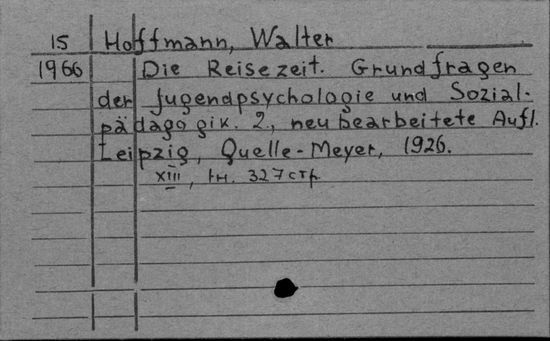 15 Hoffmann, Walter
1966 Die Reisezeit. Grundfragen
der Jugendpsychologie und Sozial-
pädagogik. 2., neubearbeitete Aufl.
Leipzig, Quelle-Meyer, 1926.
XIII, 1н. 327стр.